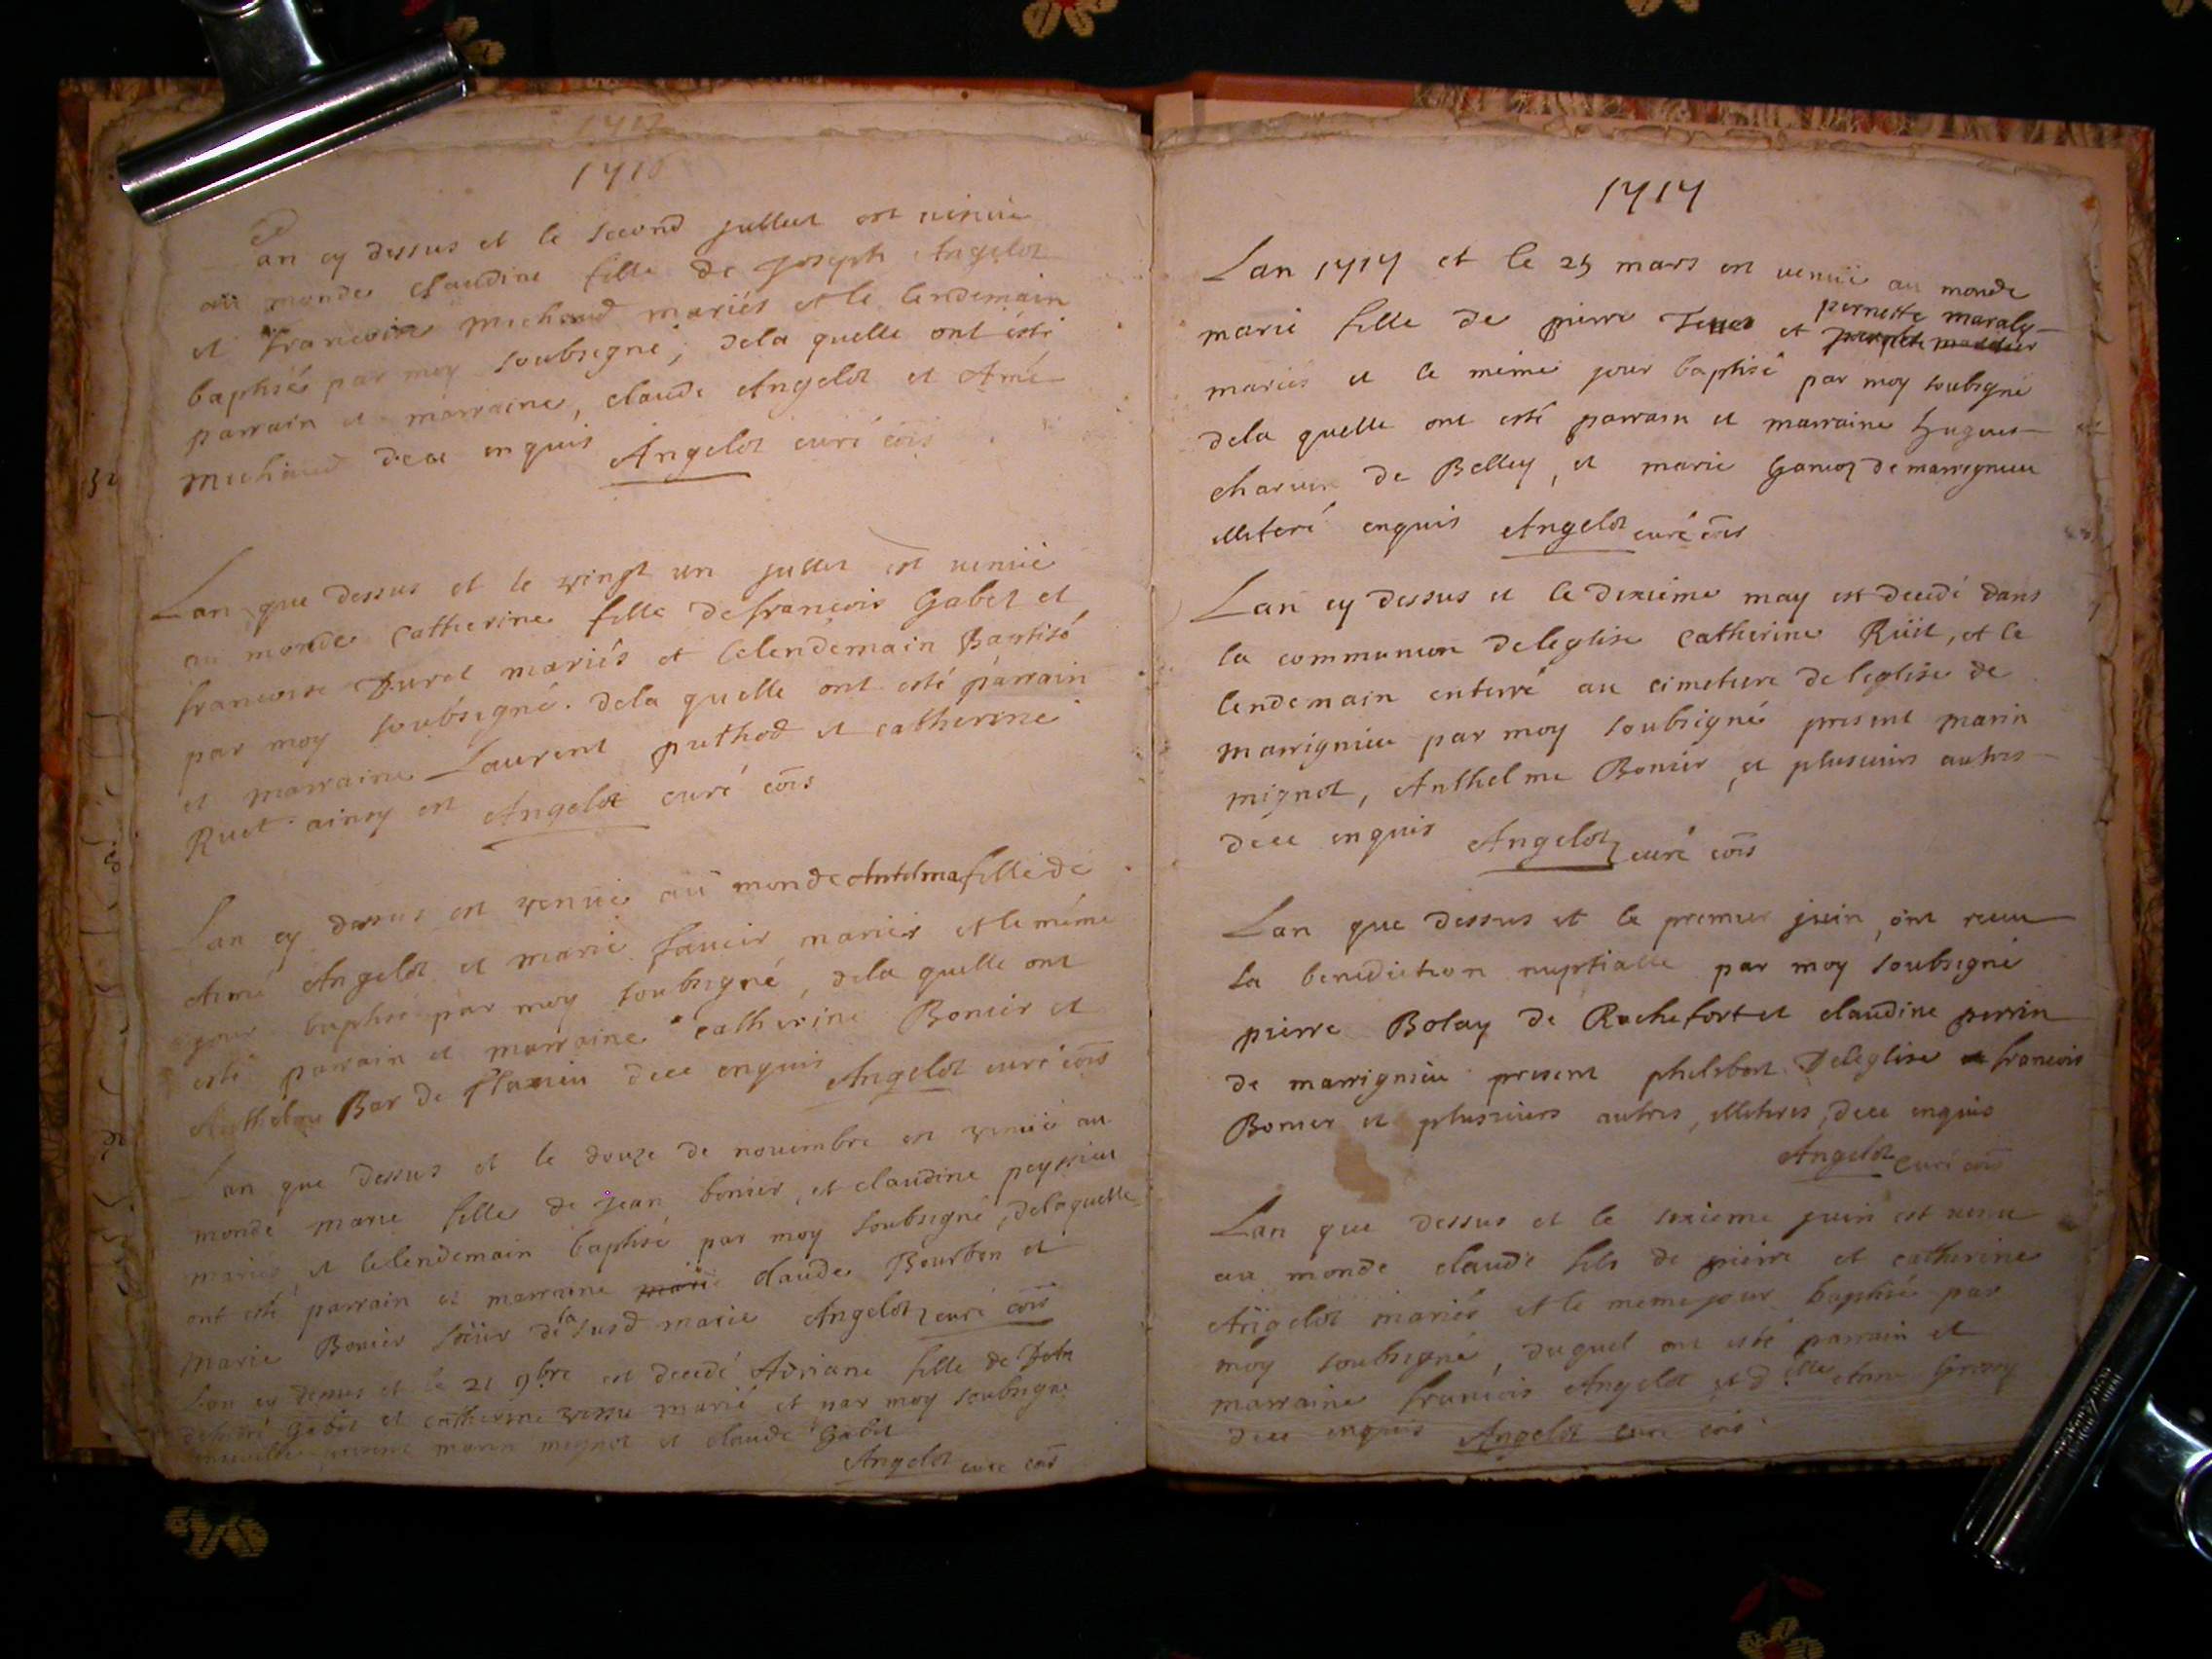 1710
Lan cy dessus et le second juillet est venüe
au monde claudine fille de joseph Angelot
et francoise michaud mariés et le lendemain
baptisée par moy soubsigné, dela quelle ont ésté
parrain et marraine, claude Angelot et Amé
michaud dece enquis Angelot curé
Lan que dessus et le vingt un juillet est venüe
au monde catherine fille defrancois Gabet et
francoise Duret mariés et lelendemain Baptisé
par moy soubsigné. dela quelle ont esté parrain
et marraine Laurent puthod et catherine
Ruet ainsy est Angelot curé
Lan cy dessus est venüe au monde Antelma fille de
Aimé Angelot et marie mariés et le méme
jour baptisé par moy soubsigné, dela quelle ont
esté parrain et marraine catherine Bonier et
Anthelme Bar de flaxieu dece enquis Angelot curé
Lan que dessus et le douze de novembre est venüe au
monde marie fille de jean bonier, et claudine peyssieu
mariés, et lelendemain baptisé par moy soubsigné, delaquelle
ont esté parrain et marraine marie claude Bourbon et
marie Bonier soeur de la susd marie Angelot curé
Lan cy dessus et le 21 9bre est decedé Adriane fille de
Gabet et catherine marié et par moy soubsigné
marin mignot et claude Gabet
Angelot curé
1717
Lan 1717 et le 25 mars est venüe au monde
marie fille de pierre et pernette maraly
mariés et le méme jour baptisé par moy soubsigné
dela quelle ont esté parrain et marraine hugues
charvin de Belley, et marie de marrignieu
illiteré enquis Angelot curé
Lan cy dessus et le dixiéme may est decedé dans
la communion deleglise catherine Rüit, et le
lendemain enterré au cimetiere deleglise de
marrignieu par moy soubsigné present marin
mignot, Anthelme Bonier, et plusieurs autres
dece enquis Angelot curé
Lan que dessus et le premier juin, ont receu
la benediction nuptialle par moy soubsigné
pierre Bolay de Rochefort et claudine perrin
de marrignieu present philibert Deleglise francois
Bonier et plusieurs autres, illiteres, dece enquis
Angelot curé
Lan que dessus et le sixieme juin est venu
au monde claude fils de pierre et catherine
Angelot mariés et le meme jour baptisé par
moy soubsigné, duquel ont esté parrain et
marraine francois Angelot et d elle Anne
dece enquis Angelot curé